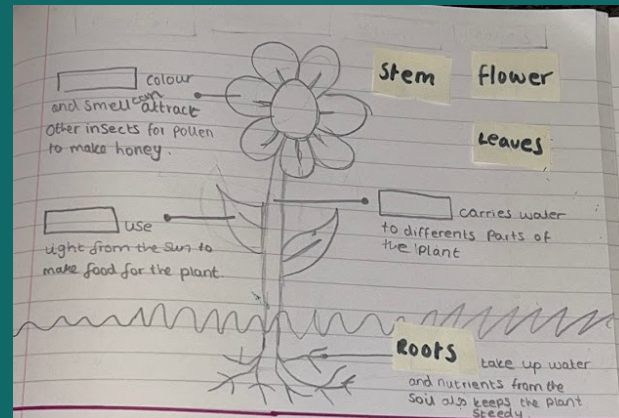 Stem
Flower
Leaves
colour
and smell can attract
other insects for pollen
to make honey.
use
light from the sun to
make food for the plant
carries water
to differents parts of
the plant
Roots
take up water
and nutrients from the
soil also keeps the plant
steedy.